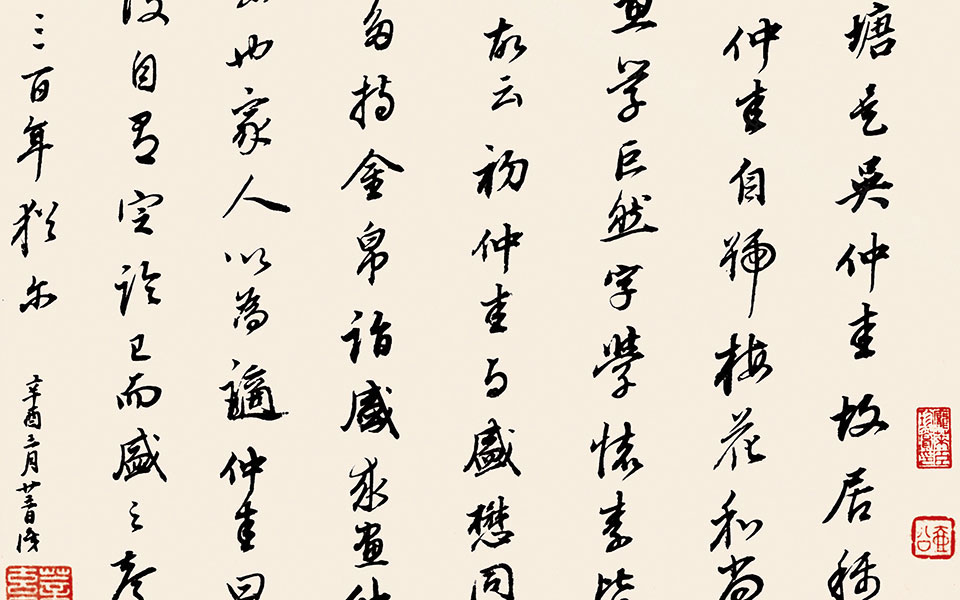 塘是吳仲圭故居
仲圭自號梅花和尚
畫學巨然字學懷素皆
故云初仲圭与盛懋同
多持金帛詣盛求畫仲
也家人以為謫仲圭曰
後自有定論已而盛之
二三百年猶尔
辛酉三月廿三日